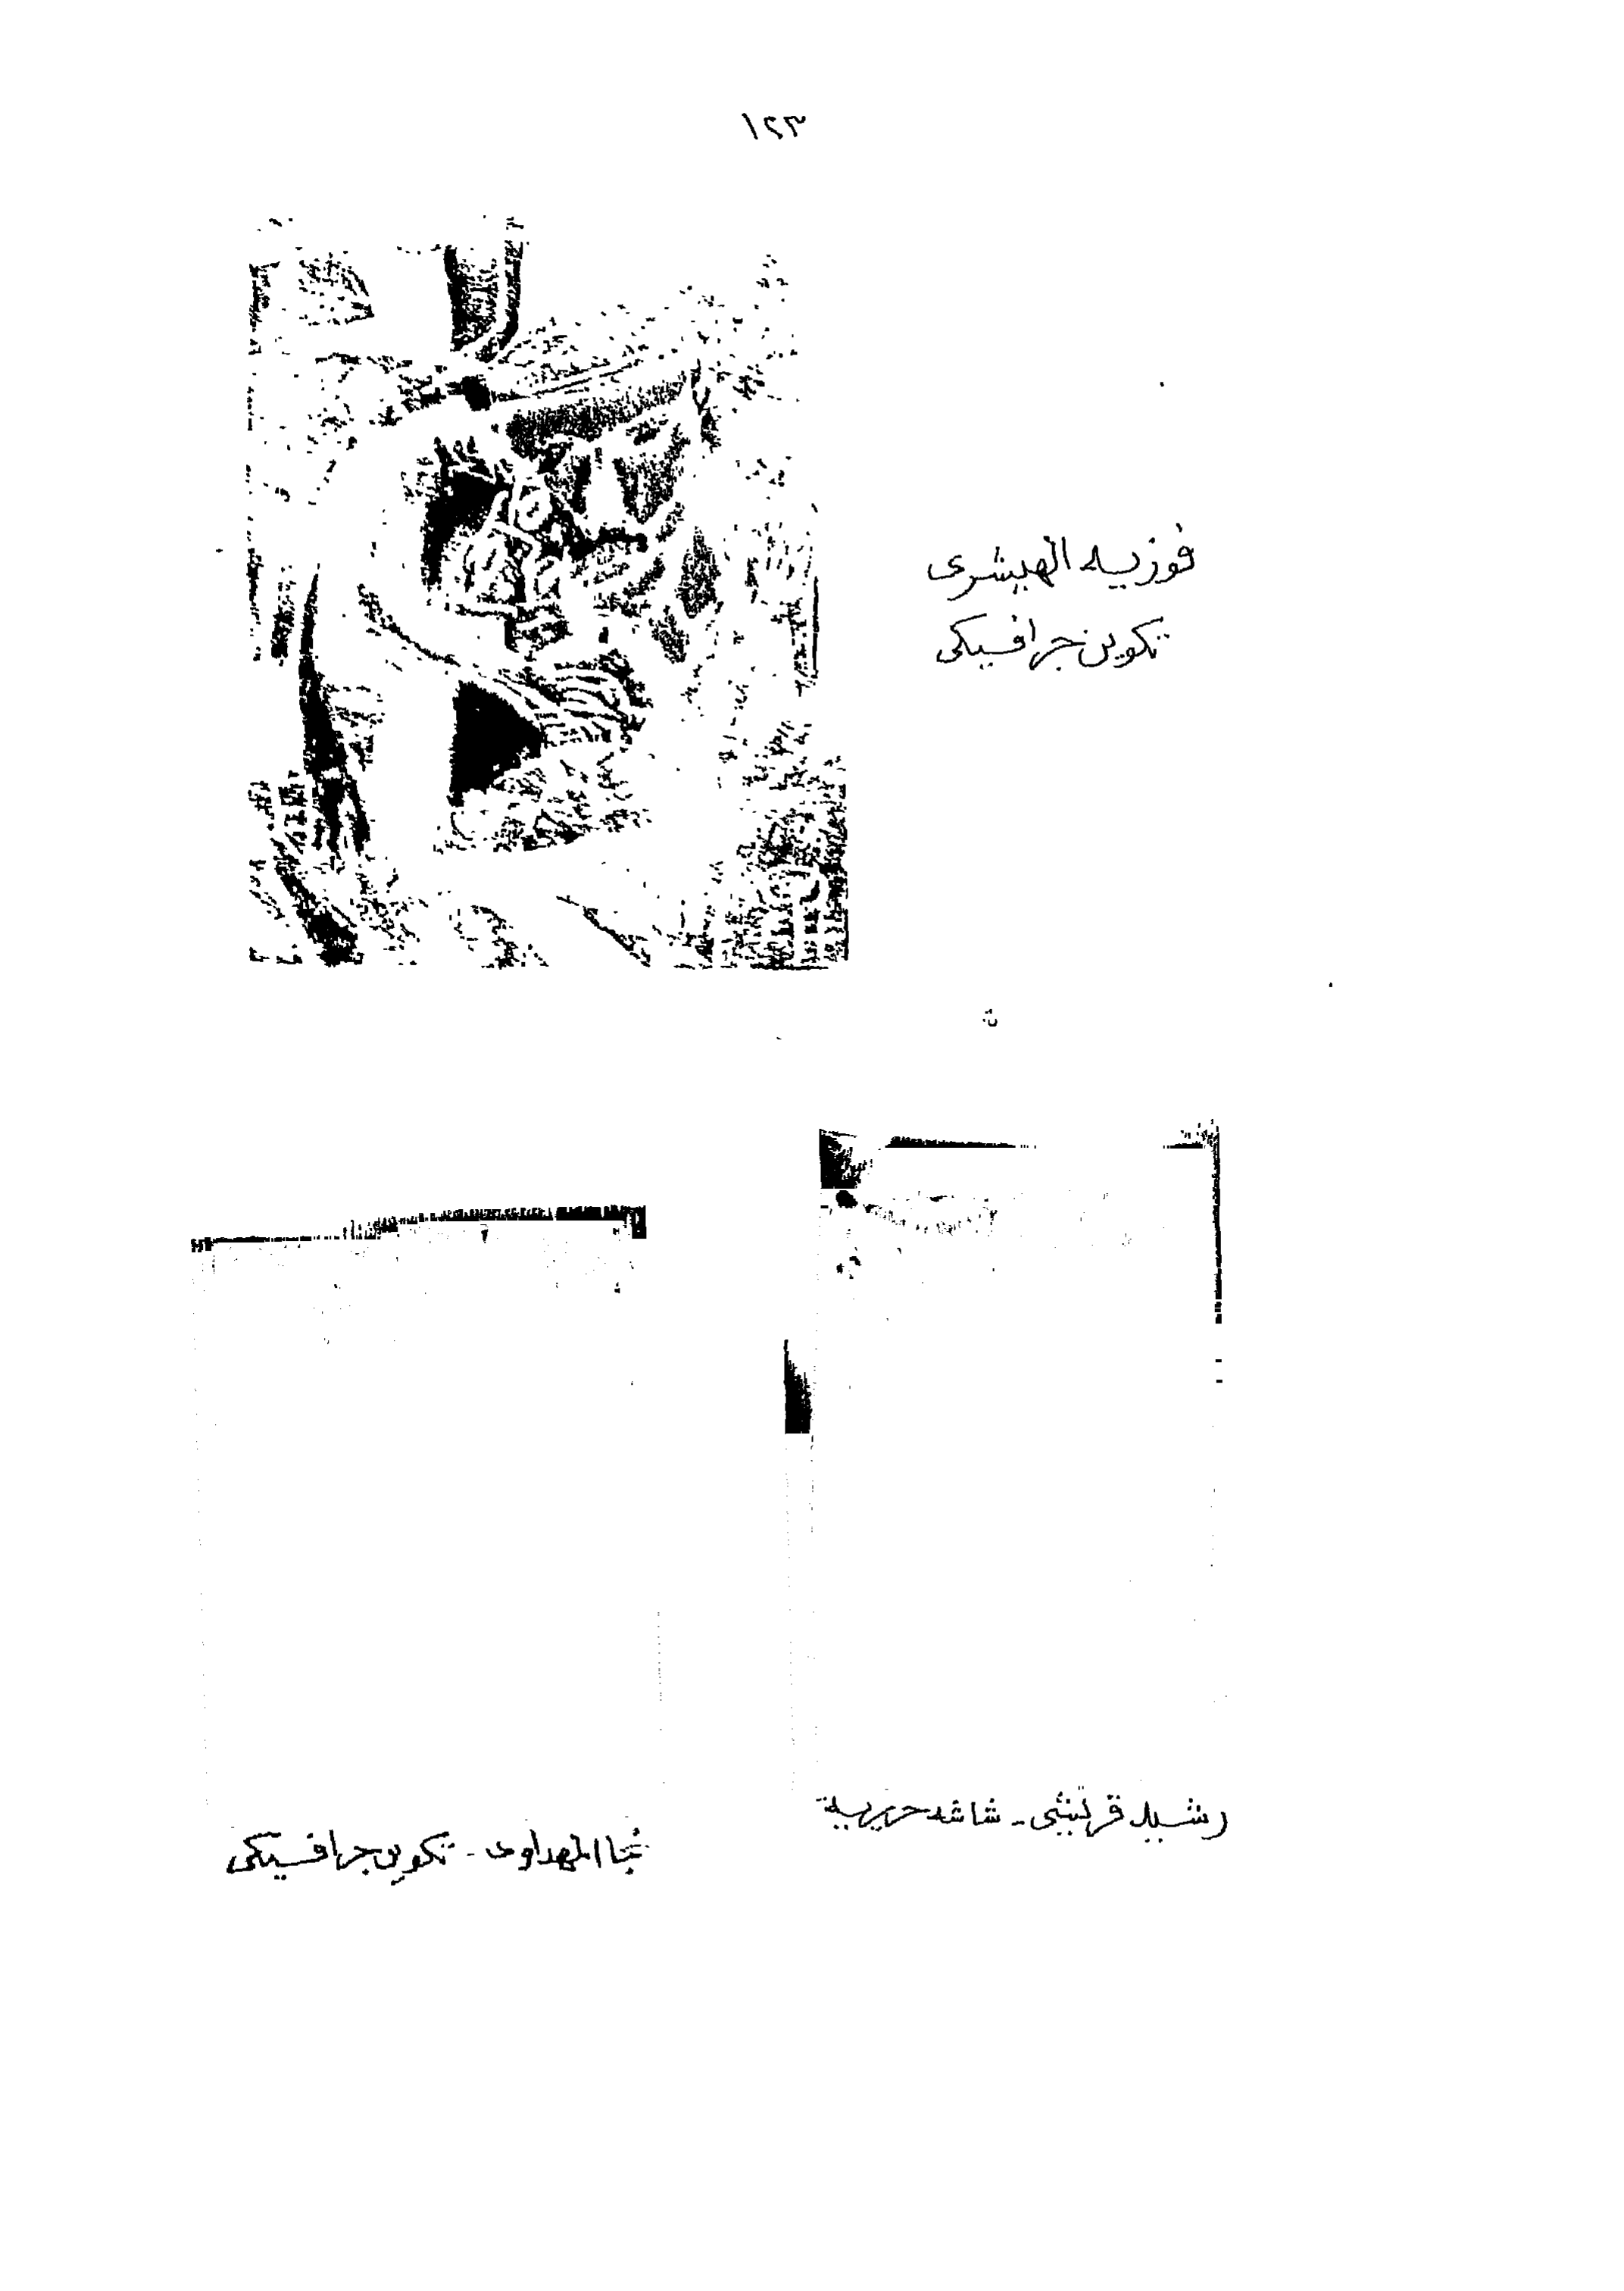 ١٢٣
فوزيه الهيشرى
تكوين جرافيكى
رشيد قريشى - شاشه حريرية
نجا المهداوى - تكوين جرافيكى